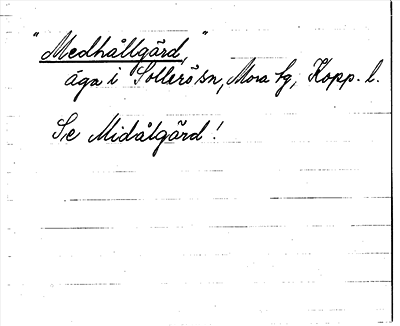 "Medhållgård,"
äga i Sollerö sn, Mora tg, Kopp. l.
Se Midålgård!